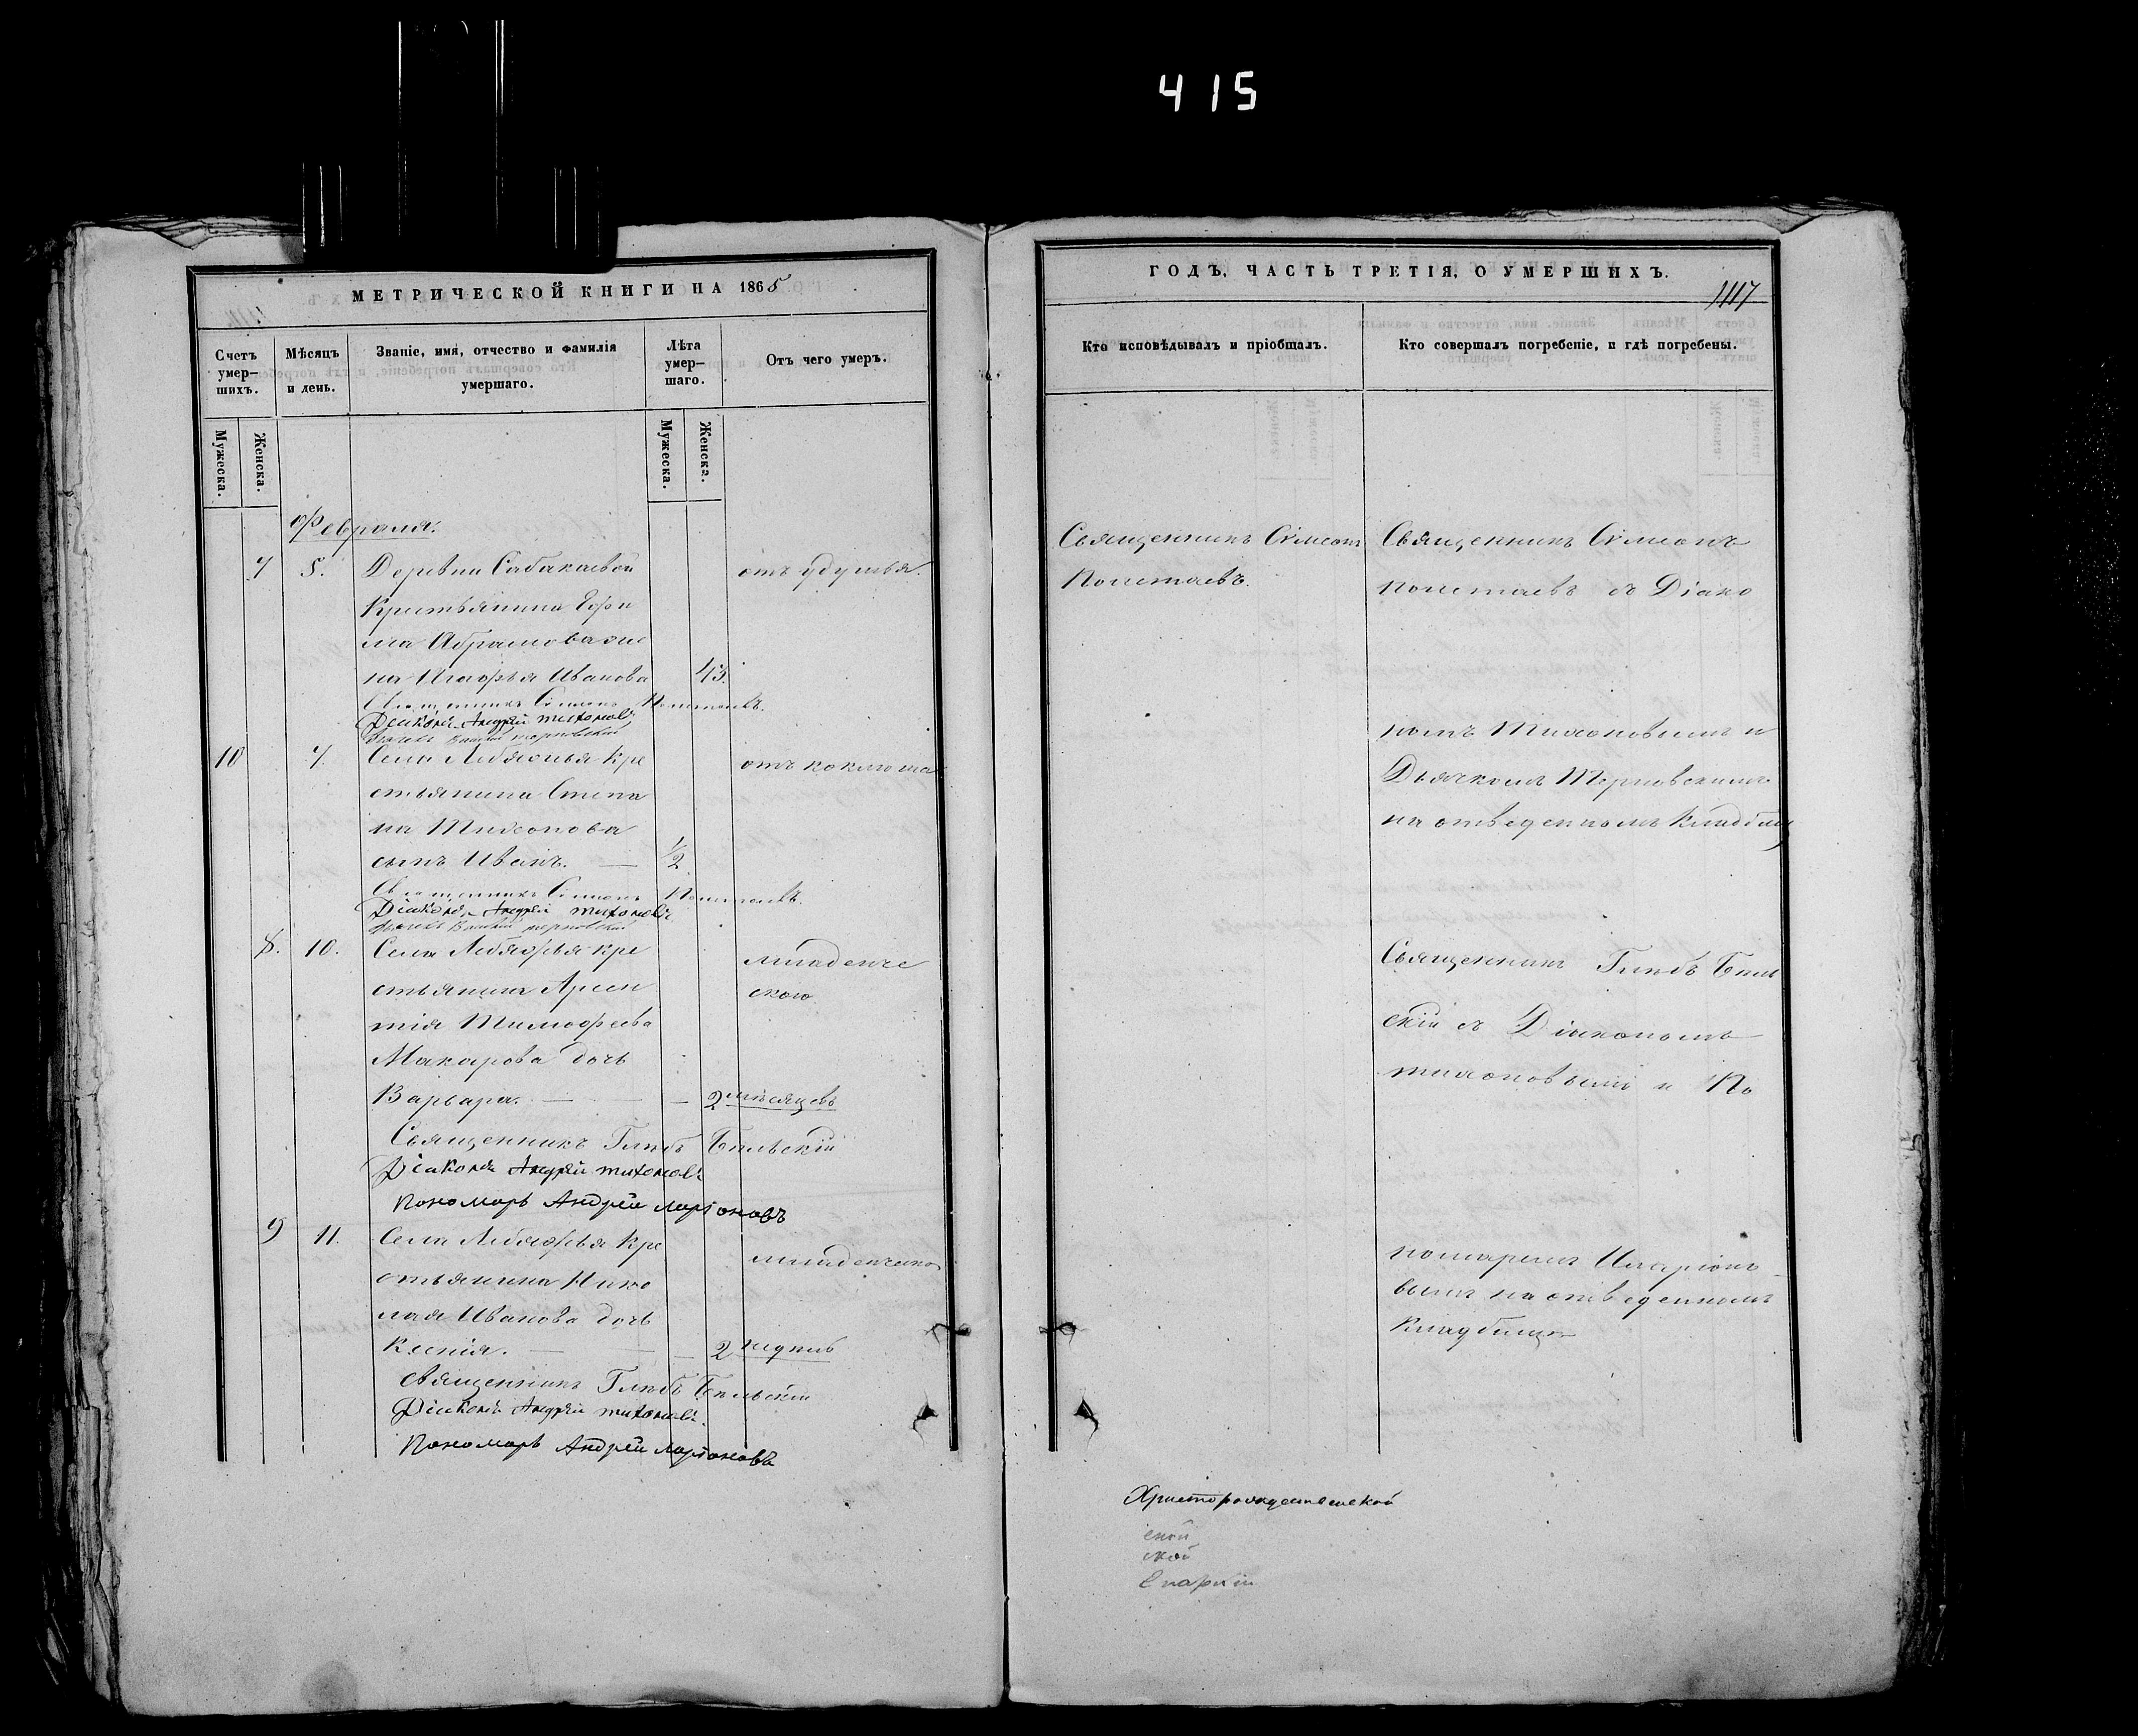 415
МЕТРИЧЕСКОЙ КНИГИ НА 1865
Счетъ умер-шихъ.
Мѣсяцъ и день.
Званіе, имя, отчество и фамилія умершаго.
Лѣта умер-шаго.
Отъ чего умеръ.
Мужеска.
Женска.
Мужеска.
Женска.
Февраля.
7 5. Деревни Сабакаевой отъ удушья.
Крестьянина Ефи
ма Абрамова же
на Агафья Иванова 43.
Священникъ Симеонъ
Діаконъ Андрей Тихоновъ
Дьячекъ Терновскій
10 7. Села Лебяжья Кре отъ коклюша
стьянина Степа
на Тихонова
сынъ Иванъ. — 1/2
Священникъ Симеонъ
Діаконъ Андрей Тихоновъ
Дьячекъ Терновскій
8. 10. Села Лебяжья кре младенче
стьянина Арсен скою
тія Тимофеева
Макарова дочь
Варвара. — — 2 мѣсяцевъ
Священникъ Глѣбъ Бѣльскій
Діаконъ Андрей Тихоновъ
Пономарь Андрей Ларіоновъ
9 11. Села Лебяжья Кре младенческою
стьянина Нико
лая Иванова дочь
Ксенія. — — 2 недѣль
священникъ Глѣбъ Бѣльскій
Діаконъ Андрей Тихоновъ
Пономарь Андрей Ларіоновъ
ГОДЪ, ЧАСТЬ ТРЕТІЯ, О УМЕРШИХЪ.
1117
Кто исповѣдывалъ и пріобщалъ.
Кто совершалъ погребеніе, и гдѣ погребены.
Священникъ Симеонъ
Священникъ Симеонъ
съ Діако
номъ Тихоновымъ и
Дьячкомъ Терновскимъ
на отведенномъ кладбищѣ
Священникъ Глѣбъ Бѣль
скій съ Діакономъ
Тихоновымъ и По
номаремъ Иларіоно
вымъ на отведенномъ
Кладбищѣ
Христорождественской
ской
ской
Епархіи